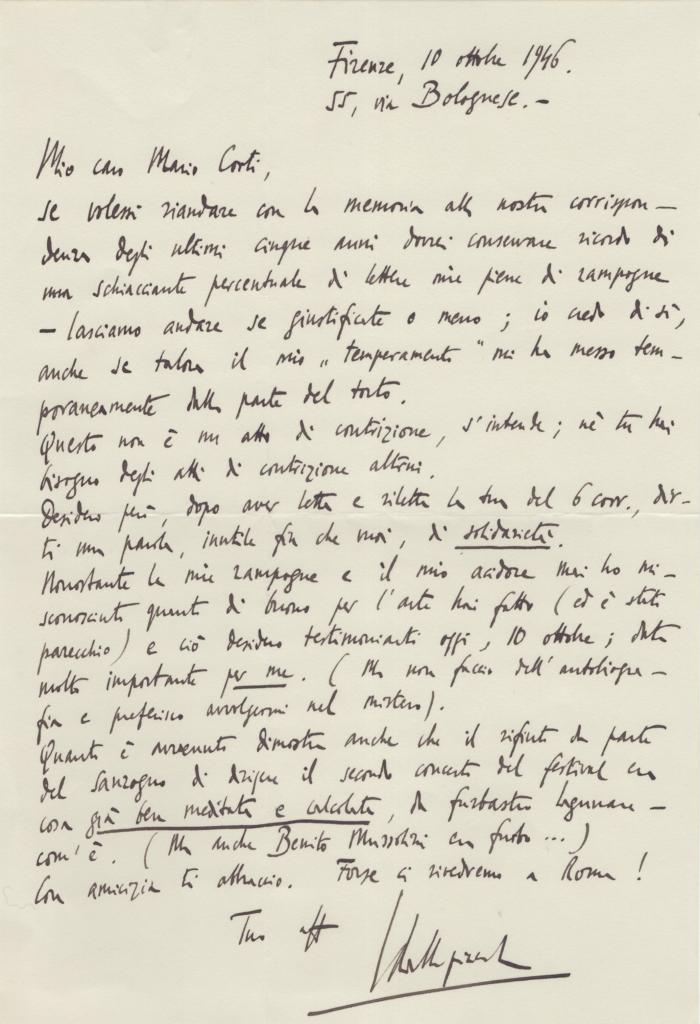 Firenze, 10 ottobre 1946.
55, via Bolognese.—
Mio caro Mario Corti,
se volessi riandare con la memoria alla nostra corrispon—
denza degli ultimi cinque anni dovrei conservare ricordo di
una schiacciante percentuale di lettere mie piene di rampogne
— lasciamo andare se giustificate o meno; io credo di sì,
anche se talora il mio „temperamento" mi ha messo tem—
poraneamente dalla parte del torto.
Questo non è un atto di contrizione, s'intende; nè tu hai
bisogno degli atti di contrizione altrui.
Desidero però, dopo aver letta e riletta la tua del 6 corr., dir—
ti una parola, inutile fin che vuoi, di solidarietà.
Nonostante le mie rampogne e il mio acidore mai ho mi—
sconosciuto quanto di buono per l'arte hai fatto (ed è stato
parecchio) e ciò desidero testimoniarti oggi, 10 ottobre; data
molto importante per me. (Ma non faccio dell'autobiogra—
fia e preferisco avvolgermi nel mistero).
Quanto è avvenuto dimostra anche che il rifiuto da parte
del Sanzogno di dirigere il secondo concerto del festival era
cosa già ben meditata e calcolata, da furbastro lagunare—
com'è. (Ma anche Benito Mussolini era furbo ...)
Con amicizia ti abbraccio. Forse ci rivedremo a Roma!
Tuo aff
LDallapiccola